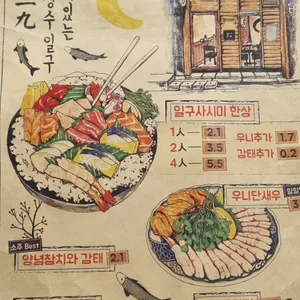 있는
성수일구
一九
일구사시미 한상
1人 2.1
2人 3.5
4人 5.5
우니추가 1.7
감태추가 0.2
소주 Best
양념참치와 감태 2.1
우니단새우
3